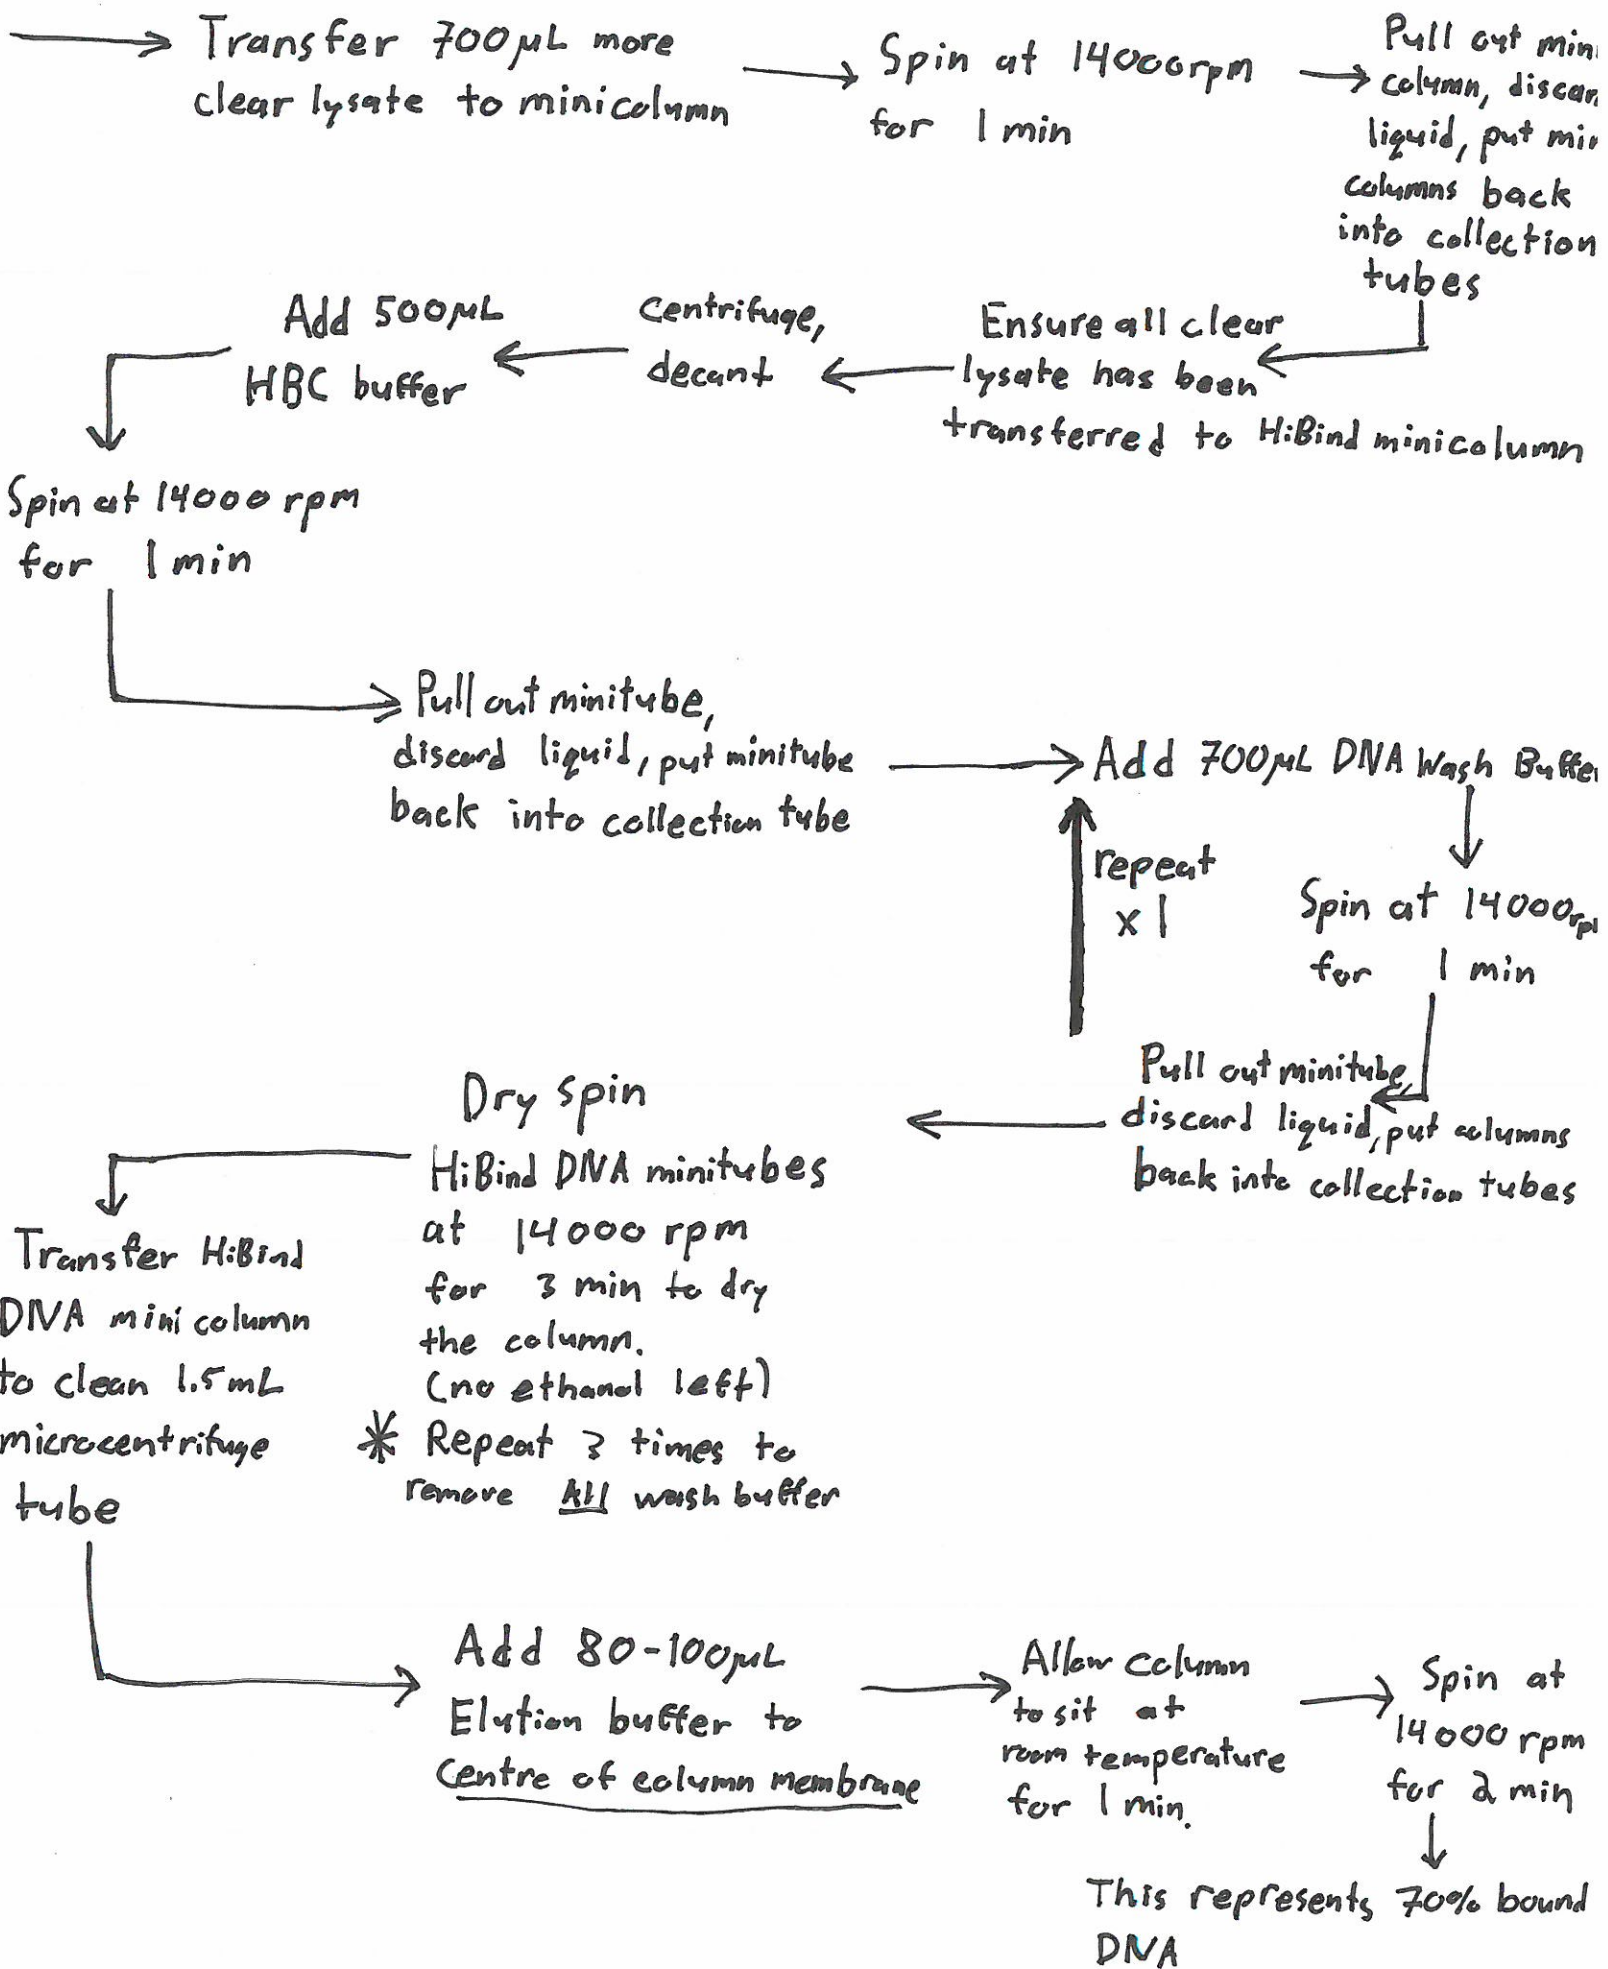 Transfer 700μL more
clear lysate to minicolumn
Spin at 14000rpm
for 1 min
Pull out mini
column, discar
liquid, put min
columns back
into collection
tubes
Ensure all clear
lysate has been
transferred to HiBind minicolumn
Centrifuge,
decant
Add 500μL
HBC buffer
Spin at 14000 rpm
for 1 min
Pull out minitube,
discard liquid, put minitube
back into collection tube
Add 700μL DNA Wash Buffer
repeat
x 1
Spin at 14000rpm
for 1 min
Pull out minitube,
discard liquid, put columns
back into collection tubes
Dry spin
HiBind DNA minitubes
at 14000 rpm
for 3 min to dry
the column.
(no ethanol left)
* Repeat 3 times to
remove All wash buffer
Transfer HiBind
DNA mini column
to clean 1.5mL
microcentrifuge
tube
Add 80-100μL
Elution buffer to
Centre of column membrane
Allow column
to sit at
room temperature
for 1 min.
Spin at
14000 rpm
for 2 min
This represents 70% bound
DNA